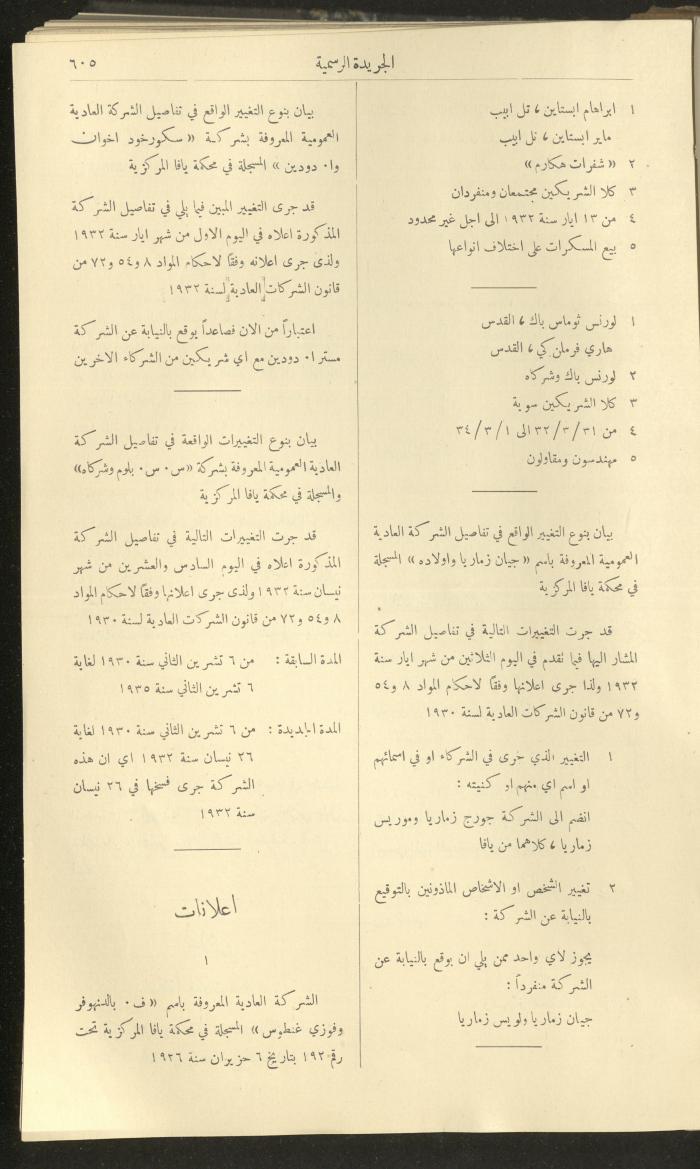 الجريدة الرسمية
٦٠٥
١ ابراهام ابستاين ، تل ابيب
ماير ابستاين ، تل ابيب
٢ « شفرات هكارم »
٣ كلا الشريكين مجتمعان ومنفردان
٤ من ١٣ ايار سنة ١٩٣٢ الى اجل غير محدود
٥ بيع المسكرات على اختلاف انواعها
١ لورنس ثوماس باك ، القدس
هاري فرملن كي ، القدس
٢ لورنس باك وشركاه
٣ كلا الشريكين سوية
٤ من ٣١/٣/٣٢ الى ١/٣/٣٤
٥ مهندسون ومقاولون
بيان بنوع التغيير الواقع في تفاصيل الشركة العادية
العمومية المعروفة باسم « جيان زماريا واولاده » المسجلة
في محكمة يافا المركزية
قد جرت التغييرات التالية في تفاصيل الشركة
المشار اليها فيما تقدم في اليوم الثلاثين من شهر ايار سنة
١٩٣٢ ولذا جرى اعلانها وفقاً لاحكام المواد ٨ و٥٤
و٧٢ من قانون الشركات العادية لسنة ١٩٣٠
١ التغيير الذي جرى في الشركاء او في اسمائهم
او اسم اي منهم او كنيته :
انضم الى الشركة جورج زماريا وموريس
زماريا ، كلاهما من يافا
٢ تغيير الشخص او الاشخاص الماذونين بالتوقيع
بالنيابة عن الشركة :
يجوز لاي واحد ممن يلي ان يوقع بالنيابة عن
الشركة منفرداً :
جيان زماريا ولويس زماريا
بيان بنوع التغيير الواقع في تفاصيل الشركة العادية
العمومية المعروفة بشركة « سكورخود اخوان
وا. دودين » المسجلة في محكمة يافا المركزية
قد جرى التغيير المبين فيما يلي في تفاصيل الشركة
المذكورة اعلاه في اليوم الاول من شهر ايار سنة ١٩٣٢
ولذى جرى اعلانه وفقاً لاحكام المواد ٨ و٥٤ و٧٢ من
قانون الشركات العادية لسنة ١٩٣٢
اعتباراً من الان فصاعداً يوقع بالنيابة عن الشركة
مستر ا. دودين مع اي شريكين من الشركاء الاخرين
بيان بنوع التغييرات الواقعة في تفاصيل الشركة
العادية العمومية المعروفة بشركة «س. س. بلوم وشركاه»
والمسجلة في محكمة يافا المركزية
قد جرت التغييرات التالية في تفاصيل الشركة
المذكورة اعلاه في اليوم السادس والعشرين من شهر
نيسان سنة ١٩٣٢ ولذى جرى اعلانها وفقاً لاحكام المواد
٨ و٥٤ و٧٢ من قانون الشركت العادية لسنة ١٩٣٠
المدة السابقة : من ٦ تشرين الثاني سنة ١٩٣٠ لغاية
٦ تشرين الثاني سنة ١٩٣٥
المدة الجديدة : من ٦ تشرين الثاني سنة ١٩٣٠ لغاية
٢٦ نيسان سنة ١٩٣٢ اي ان هذه
الشركة جرى فسخها في ٢٦ نيسان
سنة ١٩٣٢
اعلانات
١
الشركة العادية المعروفة باسم « ف. بالدنهوفر
وفوزي غنطوس » المسجلة في محكمة يافا المركزية تحت
رقم ١٩٢٠ بتاريخ ٦ حزيران سنة ١٩٢٦